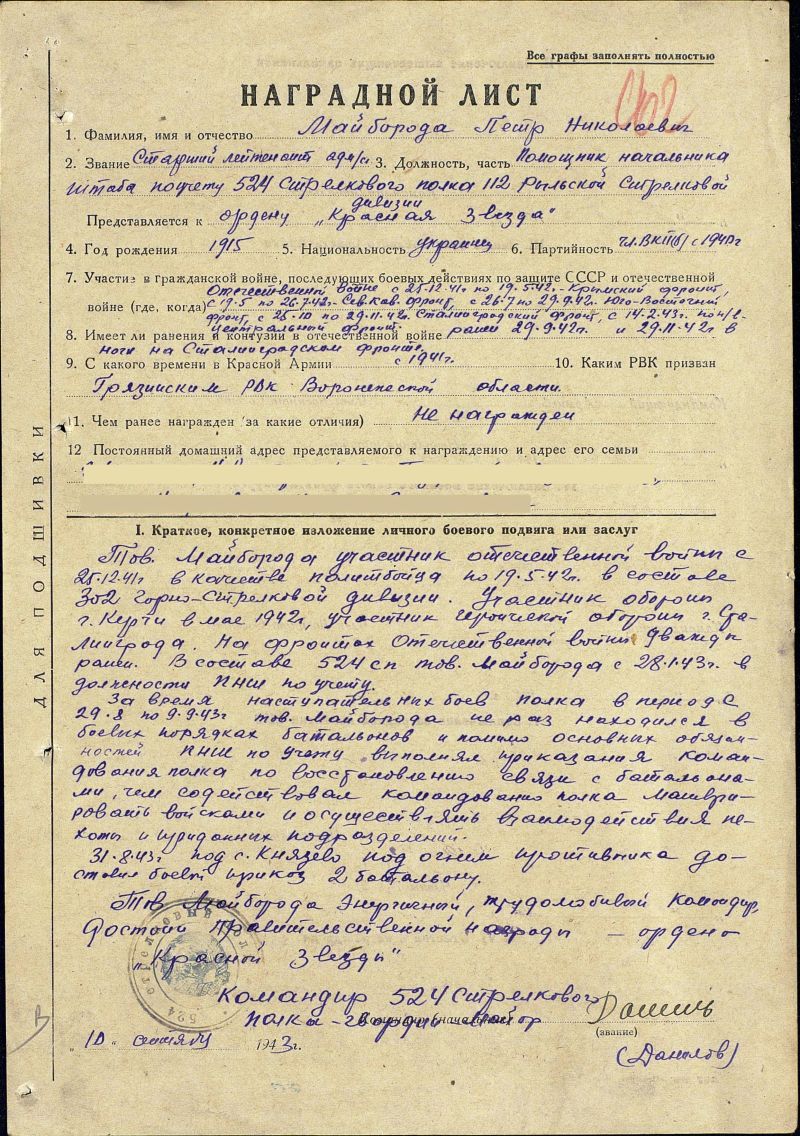 Все графы заполнять полностью
НАГРАДНОЙ ЛИСТ
1. Фамилия, имя и отчество Майборода Петр Николаевич
2. Звание Старший лейтенант адм/сл 3. Должность, часть Помощник начальника
штаба по учету 524 Стрелкового полка 112 Рыльской Стрелковой
дивизии
Представляется к ордену „Красная Звезда"
4. Год рождения 1915 5. Национальность украинец 6. Партийность чл. ВКП(б) с 1940г
7. Участие в гражданской войне, последующих боевых действиях по защите СССР и отечественной
Отечественной войне с 25.12.41г по 19.5.42г.-Крымский фронт,
войне (где, когда) с 19.5 по 26.7.42г.-Сев.Кав. фронт, с 26.7 по 29.9.42г. Юго-Восточный
фронт, с 25.10 по 29.11.42г. Сталинградский фронт, с 14.2.43г. по н/в-
Центральный фронт.
8. Имеет ли ранения и контузии в отечественной войне ранен 29.9.42г. и 29.11.42г в
ноги на Сталинградском фронте
9. С какого времени в Красной Армии с 1941г. 10. Каким РВК призван
Грязинским РВК Воронежской области
11. Чем ранее награжден (за какие отличия) Не награжден
12 Постоянный домашний адрес представляемого к награждению и адрес его семьи
ДЛЯ ПОДШИВКИ
I. Краткое, конкретное изложение личного боевого подвига или заслуг
Тов. Майборода участник отечественной войны с
25.12.41г в качестве политбойца по 19.5.42г. в составе
302 Горно-Стрелковой дивизии. Участник обороны
г. Керчи в мае 1942г, участник героической обороны г. Ста-
линграда. На фронтах Отечественной войны дважды
ранен. В составе 524 сп тов. Майборода с 28.1.43г. в
должности ПНШ по учету.
За время наступательных боев полка в период с
29.8 по 9.9.43г тов. Майборода не раз находился в
боевых порядках батальонов и помимо основных обязан-
ностей ПНШ по учету выполнял приказания коман-
дования полка по восстановлению связи с батальона-
ми, чем содействовал командованию полка маневри-
ровать войсками и осуществлять взаимодействия пе-
хоты и приданных подразделений.
31.8.43г под с. Князево под огнем противника до-
ставил боевой приказ 2 батальону.
Тов Майборода Энергичный, трудолюбивый командир,
Достоин Правительственной награды — ордена
„Красной Звезды"
Командир 524 Стрелкового
полка-гвардии майор
(звание)
„10" сентября 1943г.
(Данилов)